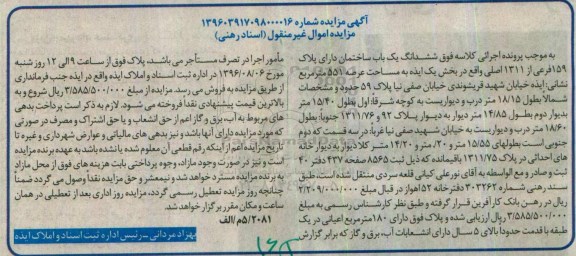 آگهی مزایده شماره ۱۳۹۶۰۳۹۱۷۰۹۸۰۰۰۰۱۶
مزایده اموال غیر منقول (اسناد رهنی)
به موجب پرونده اجرائی کلاسه فوق ششدانگ یک باب ساختمان دارای پلاک
۱۵۹ فرعی از ۱۳۱۱ اصلی واقع در بخش یک ایذه به مساحت عرصه ۵۵۱ مترمربع
نشانی: ایذه خیابان شهید فریشوندی خیابان صفی نیا پلاک ۵۹ حدود و مشخصات
شمالا بطول ۱۸/۱۵ متر درب و دیواریست به کوچه شرقا: اول بطول ۱۵/۴۰ متر
بدیوار دوم بطول ۱۴/۸۵ متر دیوار به دیوار پلاک ۹۲ و ۱۳۱۱/۷۶ جنوبا: بطول
۱۸/۶۰ متر درب و دیواریست به خیابان شهید صفی نیا غربا: در سه قسمت که دوم
جنوبی است بطولهای ۱۵/۵۵ متر و ۲۰ متر و ۱۴/۲۰ متر کلا دیوار به دیوار خانه
های احداثی در پلاک ۱۳۱۱/۷۵ باقیمانده که ذیل ثبت ۸۵۶۵ صفحه ۴۳۷ دفتر ۴۰
ثبت و صادر و مع الواسطه به آقای نورعلی کیانی قلعه سردی منتقل شده است، طبق
سند رهنی شماره ۳۰۳۲۶۲ دفترخانه ۵۲ اهواز در قبال مبلغ ۲/۲۰۹/۰۰۰/۰۰۰
ریال در رهن بانک کارآفرین قرار گرفته و طبق نظر کارشناس رسمی به مبلغ
۳/۵۸۵/۵۰۰/۰۰۰ ریال ارزیابی شده و پلاک فوق دارای ۱۸۰ مترمربع اعیانی در یک
طبقه با قدمت حدودا بالای ۵ سال دارای انشعابات آب، برق و گاز که برابر گزارش
مأمور اجرا در تصرف مستأجر می باشد، پلاک فوق از ساعت ۹ الی ۱۲ روز شنبه
مورخ ۱۳۹۶/۰۸/۰۶ در اداره ثبت اسناد و املاک ایذه واقع در ایذه جنب فرمانداری
از طریق مزایده به فروش می رسد. مزایده از مبلغ ۳/۵۸۵/۵۰۰/۰۰۰ ریال شروع و به
بالاترین قیمت پیشنهادی نقدا فروخته می شود. لازم به ذکر است پرداخت بدهی
های مربوط به آب، برق و گاز اعم از حق انشعاب و یا حق اشتراک و مصرف در صورتی
که مورد مزایده دارای آنها باشد و نیز بدهی های مالیاتی و عوارض شهرداری و غیره تا
تاریخ مزایده اعم از اینکه رقم قطعی آن معلوم شده یا نشده باشد به عهده برنده مزایده
است و نیز در صورت وجود مازاد، وجوه پرداختی بابت هزینه های فوق از محل مازاد
به برنده مزایده مسترد خواهد شد و نیمعشر و حق مزایده نقدا وصول می گردد ضمنا
چنانچه روز مزایده تعطیل رسمی گردد، مزایده روز اداری بعد از تعطیلی در همان
ساعت و مکان مقرر برگزار خواهد شد.
۵/۲۰۸۱/م/الف
بهراد مردانی - رئیس اداره ثبت اسناد و املاک ایذه